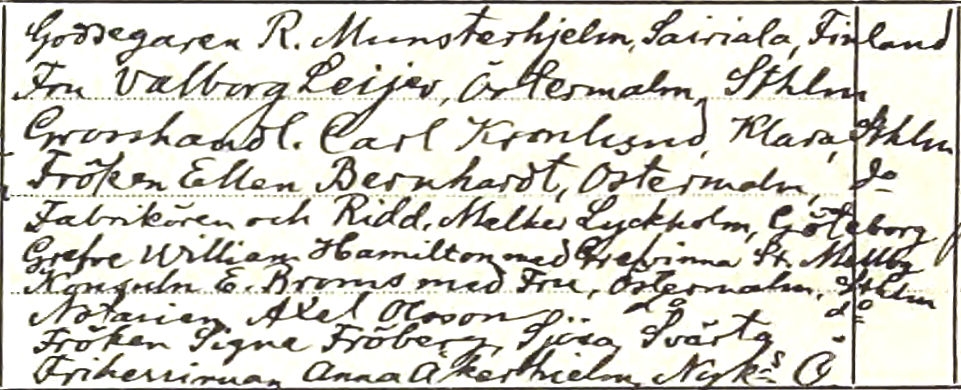 Godsegaren R. Munsterhjelm, Sairiala, Finland
Fru Valborg Leijer, Östermalm, Sthlm
Grosshandl. Carl Kronlund, Klara, Sthlm
Fröken Ellen Bernhardt, Östermalm, do
Fabrikören och Ridd. Melker Lyckholm, Göteborg
Grefve William Hamilton med Grefvinna St. Mellby
Konsuln E. Broms med Fru, Östermalm, Sthlm
Notarien Axel Olsson do do
Fröken Signe Fröberg, Sjösa, Svärta
Friherrinnan Anna Åkerhielm, Nyk:s